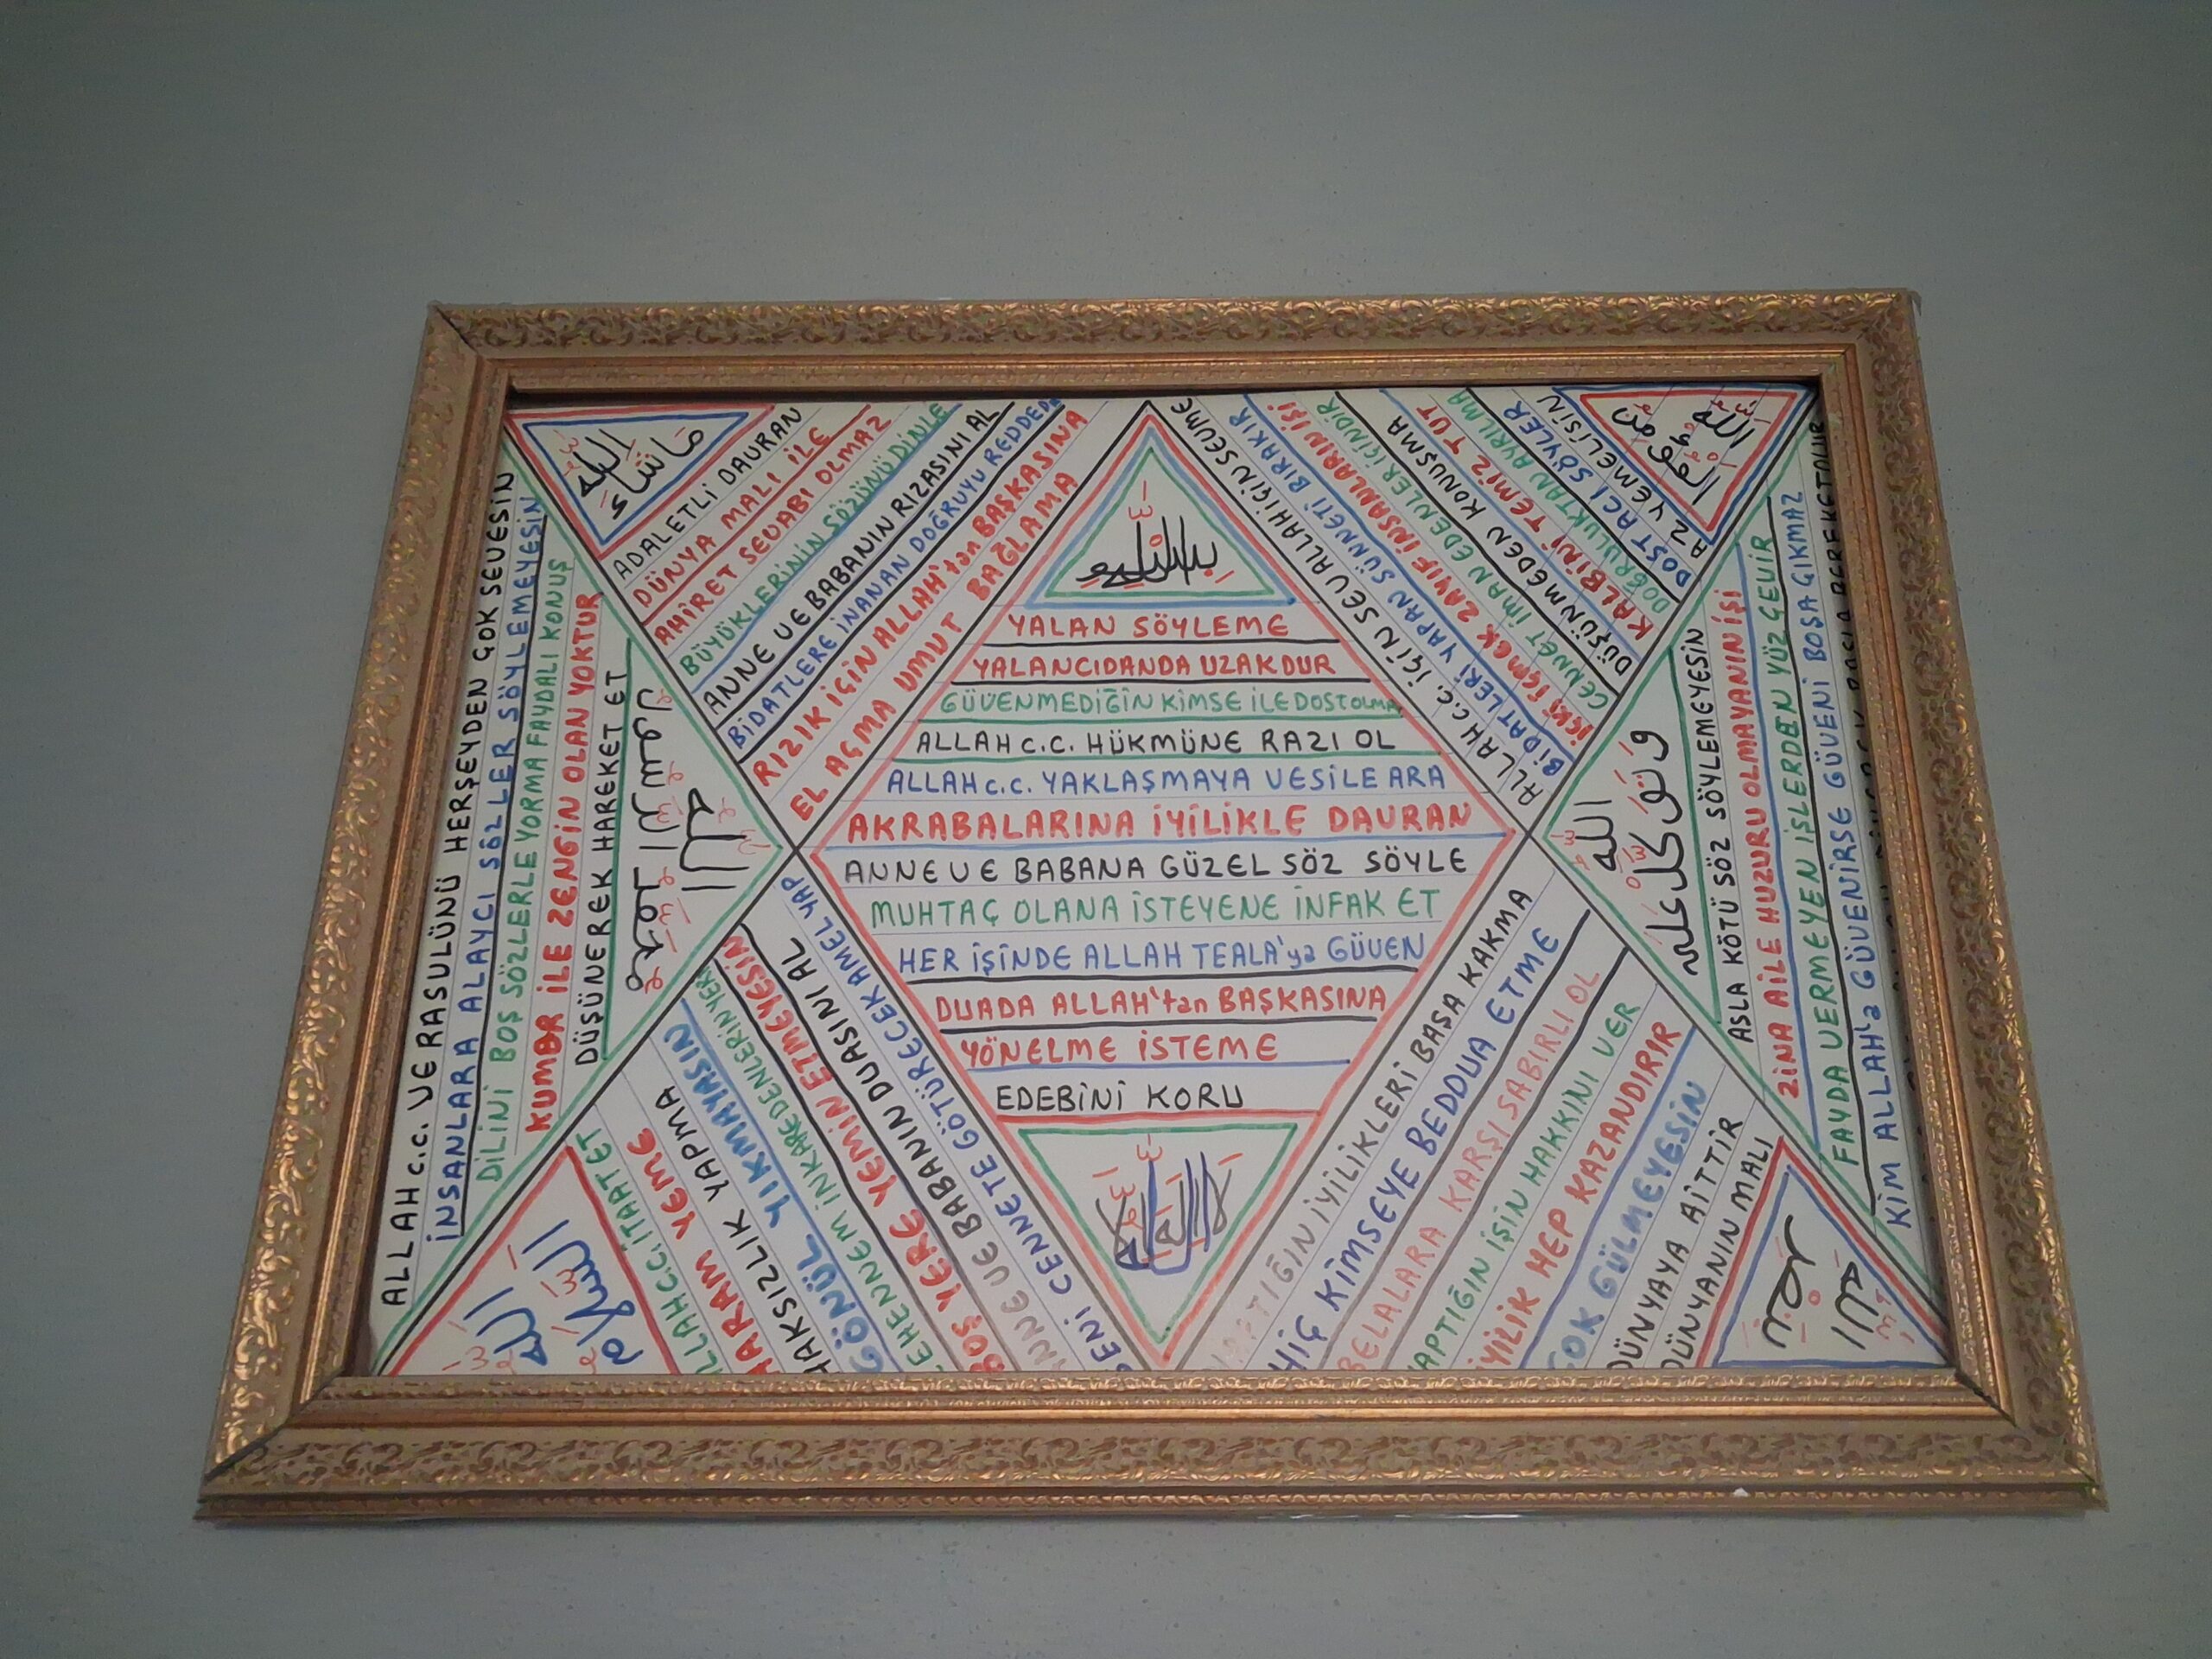 ماشاء
الله
ADALETLİ DAVRAN
DÜNYA MALI İLE
AHİRET SEVABI OLMAZ
BÜYÜKLERİNİN SÖZÜNÜ DİNLE
ANNE VE BABANIN RIZASINI AL
BİDATLERE İNANAN DOĞRUYU REDDEDE
RIZIK İÇİN ALLAH'tan BAŞKASINA
EL AÇMA UMUT BAĞLAMA
YALAN SÖYLEME
YALANCIDANDA UZAKDUR
GÜVENMEDİĞİN KİMSE İLE DOST OLMA
ALLAH c.c. HÜKMÜNE RAZI OL
ALLAH c.c. YAKLAŞMAYA VESİLE ARA
AKRABALARINA İYİLİKLE DAVRAN
ANNE VE BABANA GÜZEL SÖZ SÖYLE
MUHTAÇ OLANA İSTEYENE İNFAK ET
HER İŞİNDE ALLAH TEALA'ya GÜVEN
DUADA ALLAH'tan BAŞKASINA
YÖNELME İSTEME
EDEBİNİ KORU
ALLAH c.c. İÇİN SEV ALLAH İÇİN SEVME
BİDATLERİ YAPAN SÜNNETİ BIRAKIR
İÇKİ İÇMEK ZAYIF İNSANLARIN İŞİ
CENNET İMAN EDENLER İÇİNDİR
DÜŞÜNMEDEN KONUŞMA
KALBİNİ TEMİZ TUT
DOĞRULUKTAN AYRILMA
DOST ACI SÖYLER
AZ YEMELİSİN
الله
ALLAH c.c. VE RASULÜNÜ HERŞEYDEN ÇOK SEVESİN
İNSANLARA ALAYCI SÖZLER SÖYLEMEYESİN
DİLİNİ BOŞ SÖZLERLE YORMA FAYDALI KONUŞ
KUMAR İLE ZENGİN OLAN YOKTUR
DÜŞÜNEREK HAREKET ET
محمد الرسول
الله
و توكل على
الله
ASLA KÖTÜ SÖZ SÖYLEMEYESİN
ZİNA AİLE HUZURU OLMAYANIN İŞİ
FAYDA VERMEYEN İŞLERDEN YÜZ ÇEVİR
KİM ALLAH'a GÜVENİRSE GÜVENİ BOŞA ÇIKMAZ
السلام
الله
ALLAH c.c. İTAAT ET
HARAM YEME
HAKSIZLIK YAPMA
GÖNÜL YIKMAYASIN
CEHENNEM İNKAR EDENLERİN YERİ
BOŞ YERE YEMİN ETMEYESİN
ANNE VE BABANIN DUASINI AL
SENİ CENNETE GÖTÜRECEK AMEL YAP
YAPTIĞIN İYİLİKLERİ BAŞA KAKMA
HİÇ KİMSEYE BEDDUA ETME
BELALARA KARŞI SABIRLI OL
YAPTIĞIN İŞİN HAKKINI VER
İYİLİK HEP KAZANDIRIR
ÇOK GÜLMEYESİN
DÜNYAYA AİTTİR
DÜNYANIN MALI